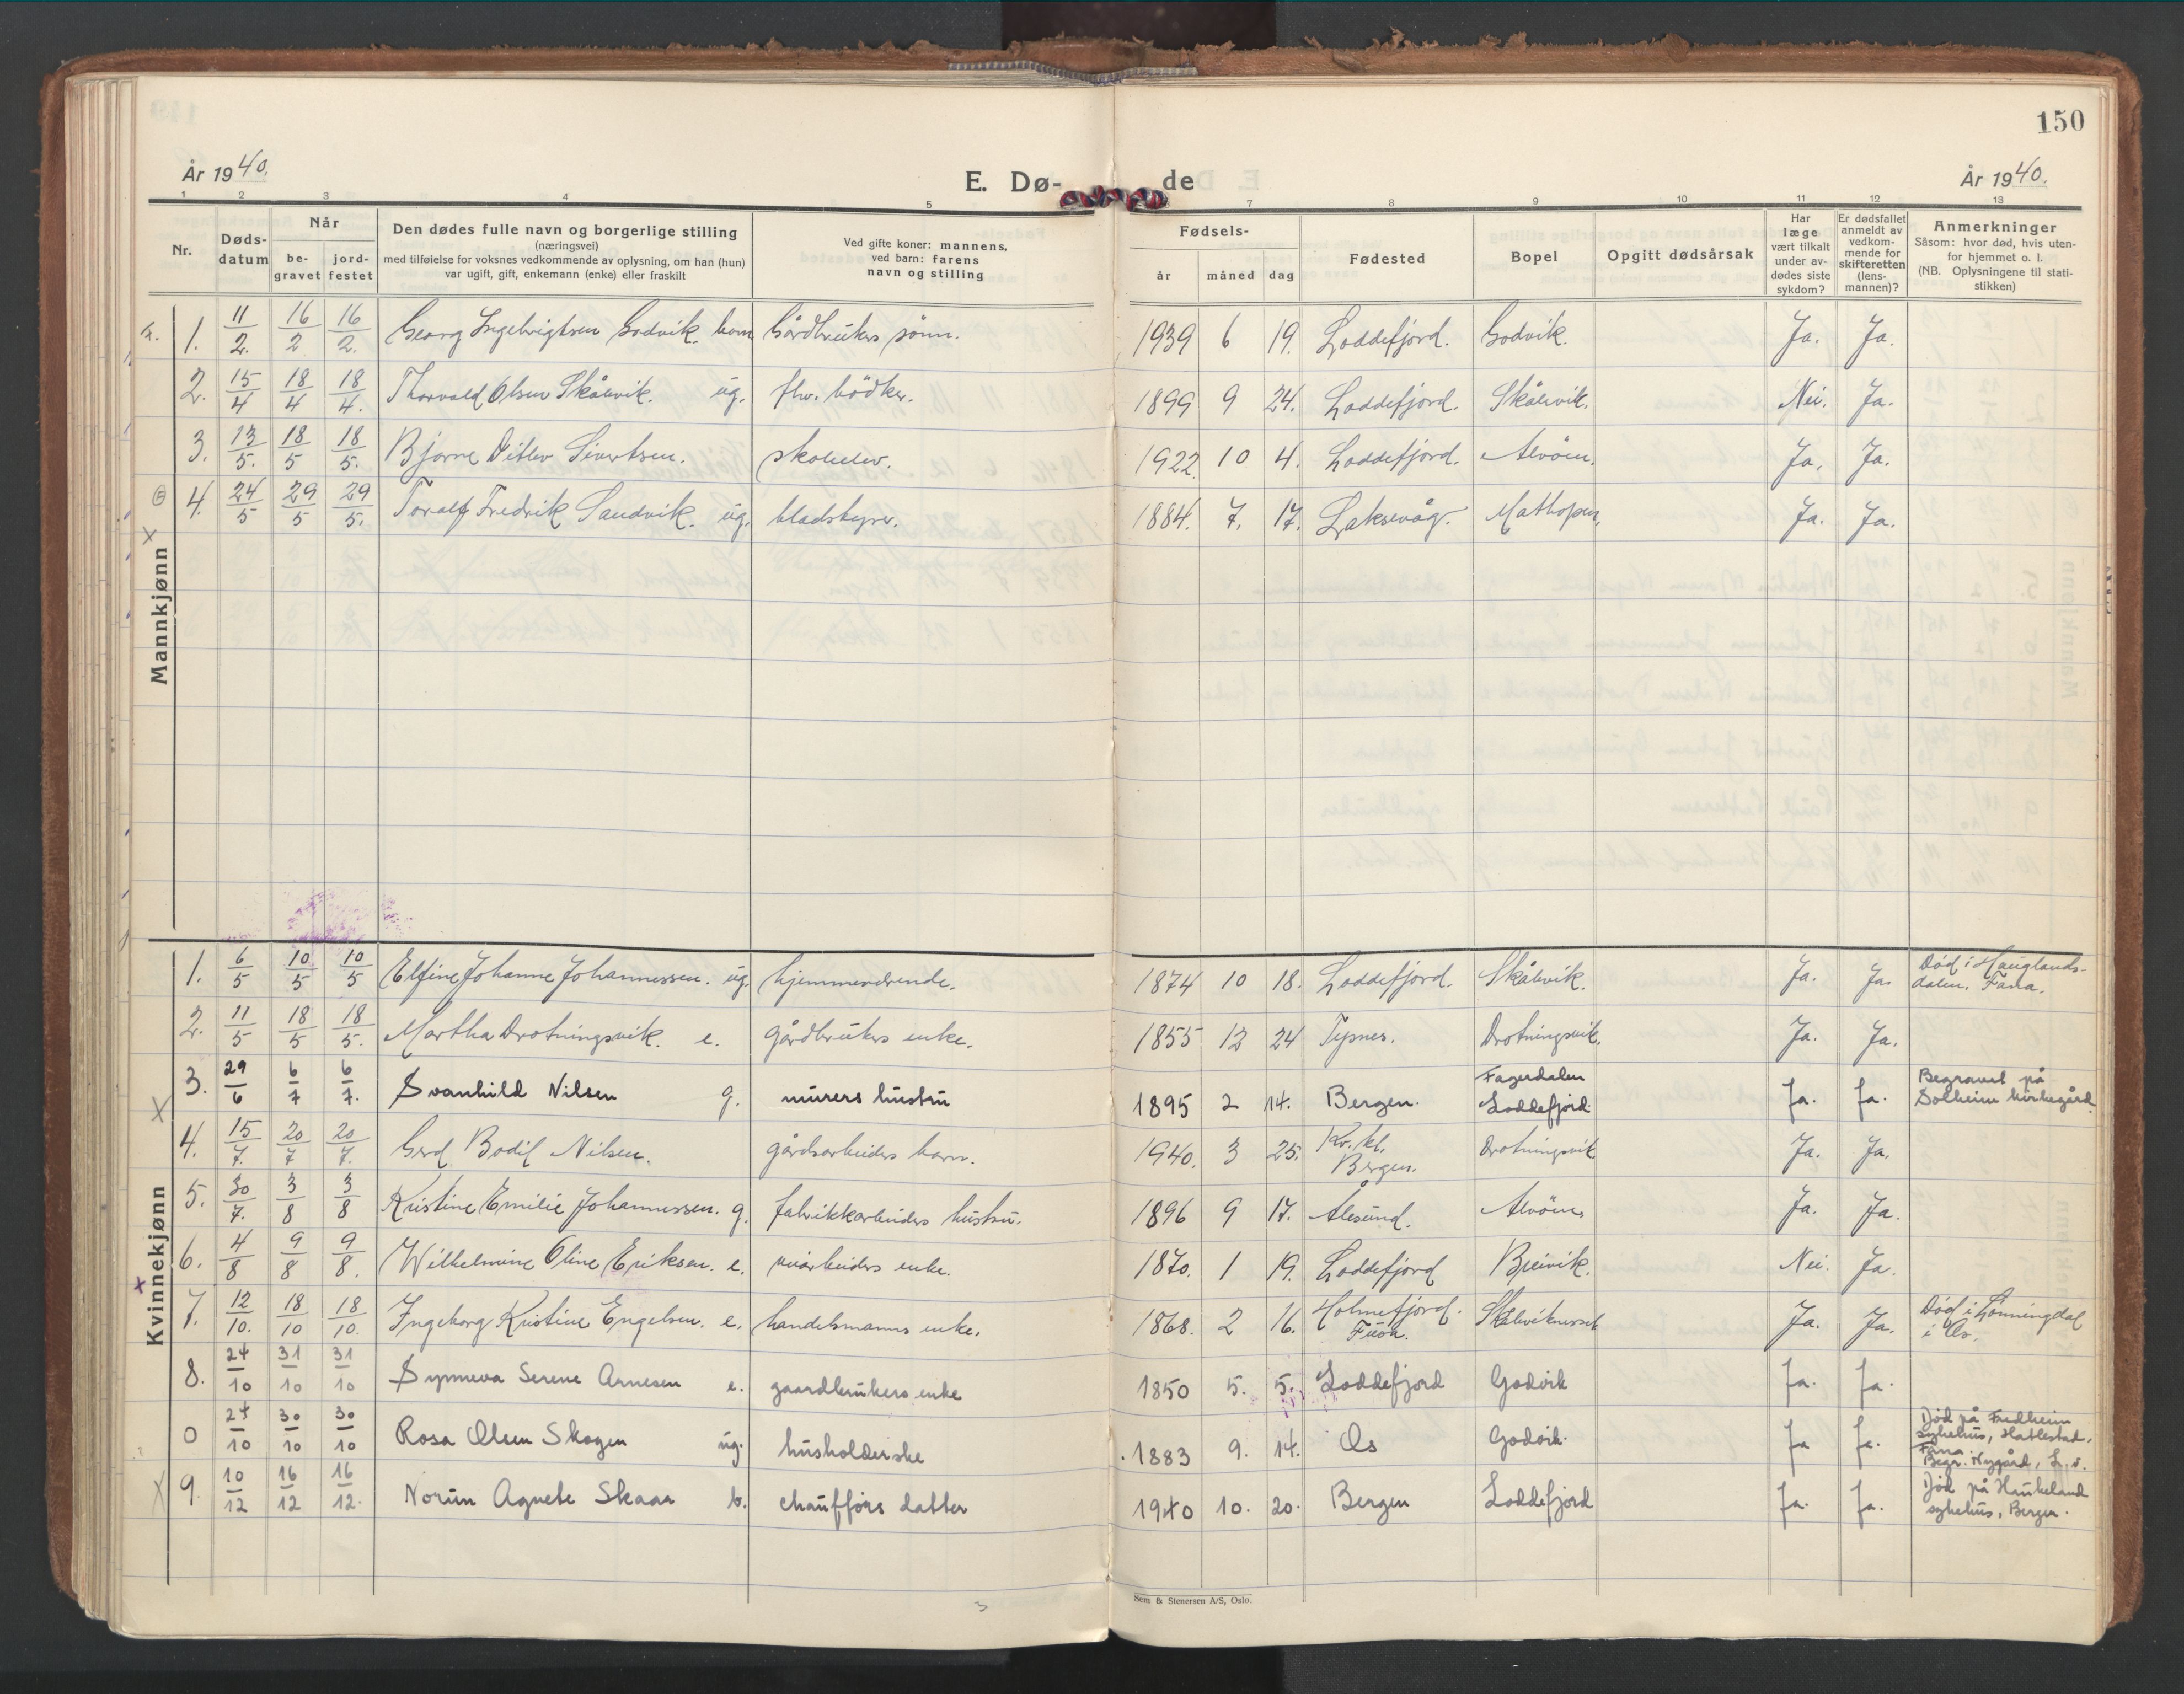 150
År 1940.
E. Dø-
de
År 1940.
1 2 3 4 5 7 8 9 10 11 12 13
Nr.
Døds-
datum
Når
be-
gravet
jord-
festet
Den dødes fulle navn og borgerlige stilling
(næringsvei)
med tilføielse for voksnes vedkommende av oplysning, om han (hun)
var ugift, gift, enkemann (enke) eller fraskilt
Ved gifte koner: mannens,
ved barn: farens
navn og stilling
Fødsels-
år måned dag
Fødested
Bopel
Opgitt dødsårsak
Har
læge
vært tilkalt
under av-
dødes siste
sykdom?
Er dødsfallet
anmeldt av
vedkom-
mende for
skifteretten
(lens-
mannen)?
Anmerkninger
Såsom: hvor død, hvis uten-
for hjemmet o. l.
(NB. Oplysningene til stati-
stikken)
Mannkjønn
1. 11/2. 16/2 16/2. Georg Ingebrigtsen Godvik. barn Gårdbrukers sönn. 1939 6 19. Loddefjord. Godvik. Ja. Ja.
2. 15/4 18/4 18/4. Thorvald Olsen Skålevik. ug. fhv. bödker. 1899 9 24. Loddefjord. Skålevik. Nei. Ja.
3. 13/5. 18/5 18/5. Bjarne Ditlev Sivertsen. skoleelev. 1922. 10 4. Loddefjord. Alvöen. Ja. Ja.
4. 24/5 29/5 29/5. Toralf Fredrik Sandvik. ug. bladstyrer. 1884. 7. 17. Laksevåg. Mathopen. Ja. Ja.
Kvinnekjønn
1. 6/5 10/5 10/5 Elfine Johanne Johannessen. ug. hjemmeværende. 1874 10 18. Loddefjord. Skålevik. Ja. Ja. Död i Hauglands-
dalen. Fana.
2. 11/5 18/5 18/5. Martha Drotningsvik. e. gårdbrukers enke. 1855 12 24 Tysnes. Drotningsvik. Ja. Ja.
3. 29/6 6/7 6/7. Svanhild Nilsen g. murers hustru 1895 2 14. Bergen. Fagerdalen
Loddefjord Ja. Ja. Begravet på
Solheim kirkegård.
4. 15/7. 20/7 20/7. Gerd Bodil Nilsen. gårdsarbeiders barn. 1940. 3 25. Kv. kl.
Bergen. Drotningsvik Ja. Ja.
5. 30/7. 3/8 3/8 Kristine Emilie Johannessen. g. fabrikkarbeiders hustru. 1896 9 17. Ålesund. Alvöen. Ja. Ja.
6. 4/8 9/8 9/8. Wilhelmine Oline Eriksen. e. veiarbeiders enke. 1870. 1 19. Loddefjord Breivik. Nei. Ja.
7. 12/10. 18/10 18/10. Ingeborg Kristine Engelsen. e. handelsmanns enke. 1868. 2 16. Holmefjord.
Fusa. Skålevikneset Ja. Ja. Död i Lönningdal
i Os.
8. 24/10 31/10 31/10 Synneva Serene Arnesen e. gaardbrukers enke 1850 5. 5. Loddefjord Godvik Ja. Ja.
0 24/10 30/10 30/10 Rosa Olsen Skogen ug. husholderske 1883 9. 14. Os Godvik. Ja Ja. Död på Fredheim
sykehus, Hatlestad,
Fana.
Begr. Nygård, L.v.
9. 10/12 16/12 16/12. Norun Agnete Skaar b. chaufförs datter 1940 10. 20. Bergen Loddefjord Ja. Ja. Död på Haukeland
sykehus, Bergen.
Sem & Stenersen A/S, Oslo.